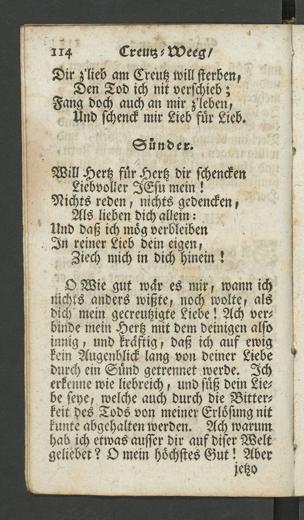 114 Creutz-Weeg/
Dir z'lieb am Creutz will sterben,
Den Tod ich nit verschieb;
Fang doch auch an mir z'leben,
Und schenck mir Lieb für Lieb.
Sünder.
Will Hertz für Hertz dir schencken
Liebvoller JEsu mein!
Nichts reden, nichts gedencken,
Als lieben dich allein:
Und daß ich mög verbleiben
In reiner Lieb dein eigen,
Ziech mich in dich hinein!
O Wie gut wär es mir, wann ich
nichts anders wißte, noch wolte, als
dich mein gecreutzigte Liebe! Ach ver-
binde mein Hertz mit dem deinigen also
innig, und kräftig, daß ich auf ewig
kein Augenblick lang von deiner Liebe
durch ein Sünd getrennet werde. Ich
erkenne wie liebreich, und süß dein Lie-
be seye, welche auch durch die Bitter-
keit des Tods von meiner Erlösung nit
kunte abgehalten werden. Ach warum
hab ich etwas ausser dir auf diser Welt
geliebet? O mein höchstes Gut! Aber
jetzo